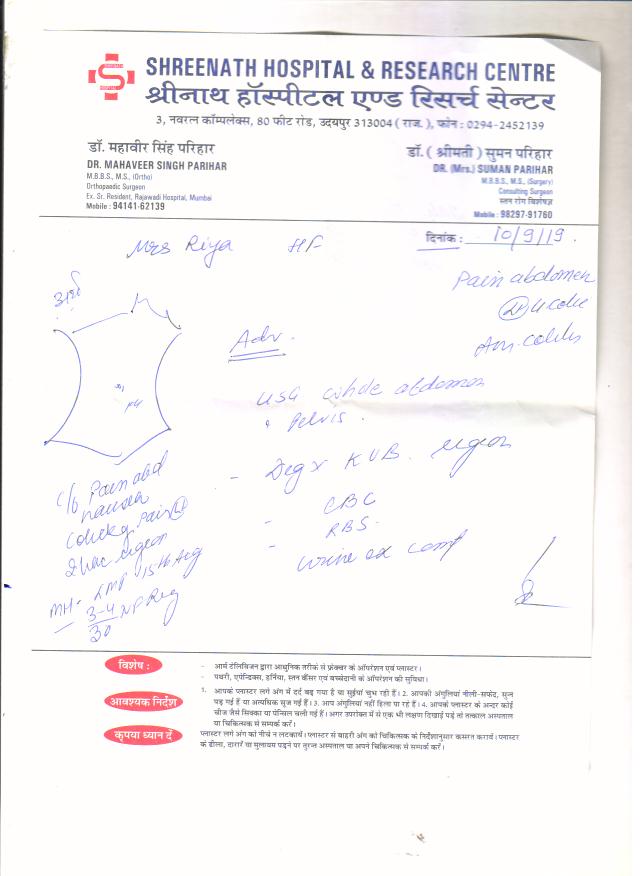 SHREENATH
SHREENATH HOSPITAL & RESEARCH CENTRE
श्रीनाथ हॉस्पीटल एण्ड रिसर्च सेन्टर
3, नवरत्न कॉम्पलेक्स, 80 फीट रोड, उदयपुर 313004 ( राज. ), फोन : 0294-2452139
डॉ. महावीर सिंह परिहार
DR. MAHAVEER SINGH PARIHAR
M.B.B.S., M.S., (Ortho)
Orthopaedic Surgeon
Ex. Sr. Resident, Rajawadi Hospital, Mumbai
Mobile : 94141-62139
डॉ. ( श्रीमती ) सुमन परिहार
DR. (Mrs.) SUMAN PARIHAR
M.B.B.S., M.S., (Surgery)
Consulting Surgeon
स्तन रोग विशेषज्ञ
Mobile : 98297-91760
दिनांक : 10/9/19.
Mrs Riya
Pain abdomen
Adv.
USG whole abdomen
Pelvis.
- KUB region
- CBC
RBS.
- Urine ex comp
c/o Pain abd
nausea
pain
region
MH - LMP 15th Aug
3-4
30
विशेष :
- आर्म टेलिविजन द्वारा आधुनिक तरीके से फ्रेक्चर के ऑपरेशन एवं प्लास्टर।
- पथरी, एपेन्डिक्स, हर्निया, स्तन कैंसर एवं बच्चेदानी के ऑपरेशन की सुविधा।
आवश्यक निर्देश
1. आपके प्लास्टर लगे अंग में दर्द बढ़ गया है या सुईयां चुभ रही हैं। 2. आपकी अंगुलियां नीली-सफेद, सुन्न
पड़ गई हैं या अत्यधिक सूज गई हैं। 3. आप अंगुलियां नहीं हिला पा रहे हैं। 4. आपके प्लास्टर के अन्दर कोई
चीज जैसे सिक्का या पेन्सिल चली गई है। अगर उपरोक्त में से एक भी लक्षण दिखाई पड़े तो तत्काल अस्पताल
या चिकित्सक से सम्पर्क करें।
कृपया ध्यान दें
प्लास्टर लगे अंग को नीचे न लटकायें। प्लास्टर से बाहरी अंग को चिकित्सक के निर्देशानुसार कसरत करायें। प्लास्टर
के ढीला, दरारों या मुलायम पड़ने पर तुरन्त अस्पताल या अपने चिकित्सक से सम्पर्क करें।